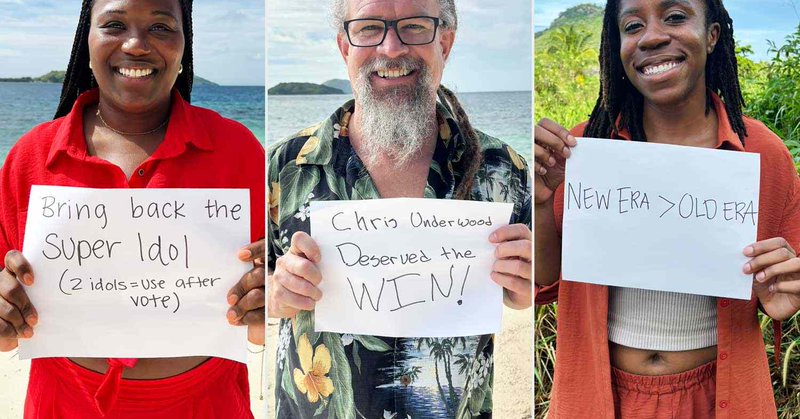 Bring back the
Super Idol
(2 idols = use after
vote)
Chris Underwood
Deserved the
WIN!
NEW ERA > OLD ERA